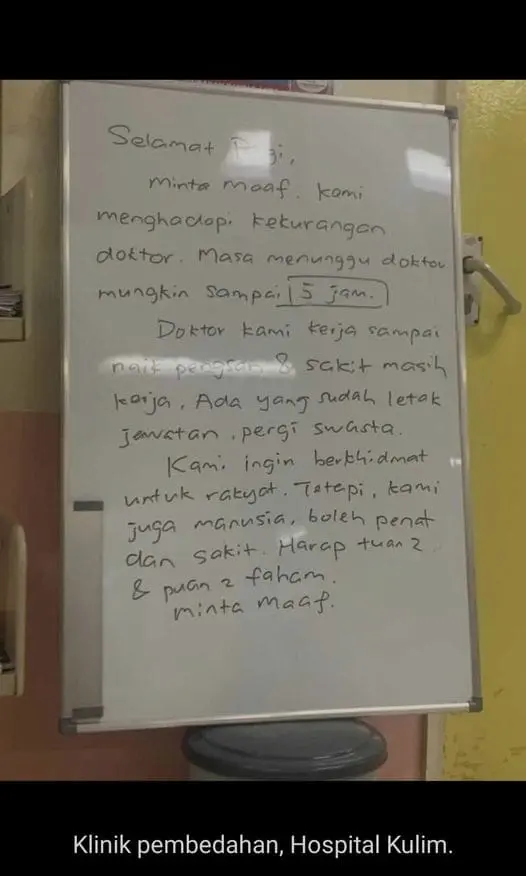 Selamat Pagi,
minta maaf. Kami
menghadapi kekurangan
doktor. Masa menunggu doktor
mungkin sampai 5 jam.
Doktor kami kerja sampai
naik pengsan & sakit masih
kerja. Ada yang sudah letak
jawatan, pergi swasta.
Kami ingin berkhidmat
untuk rakyat. Tetapi, kami
juga manusia, boleh penat
dan sakit. Harap tuan2
& puan2 faham.
minta maaf.
Klinik pembedahan, Hospital Kulim.